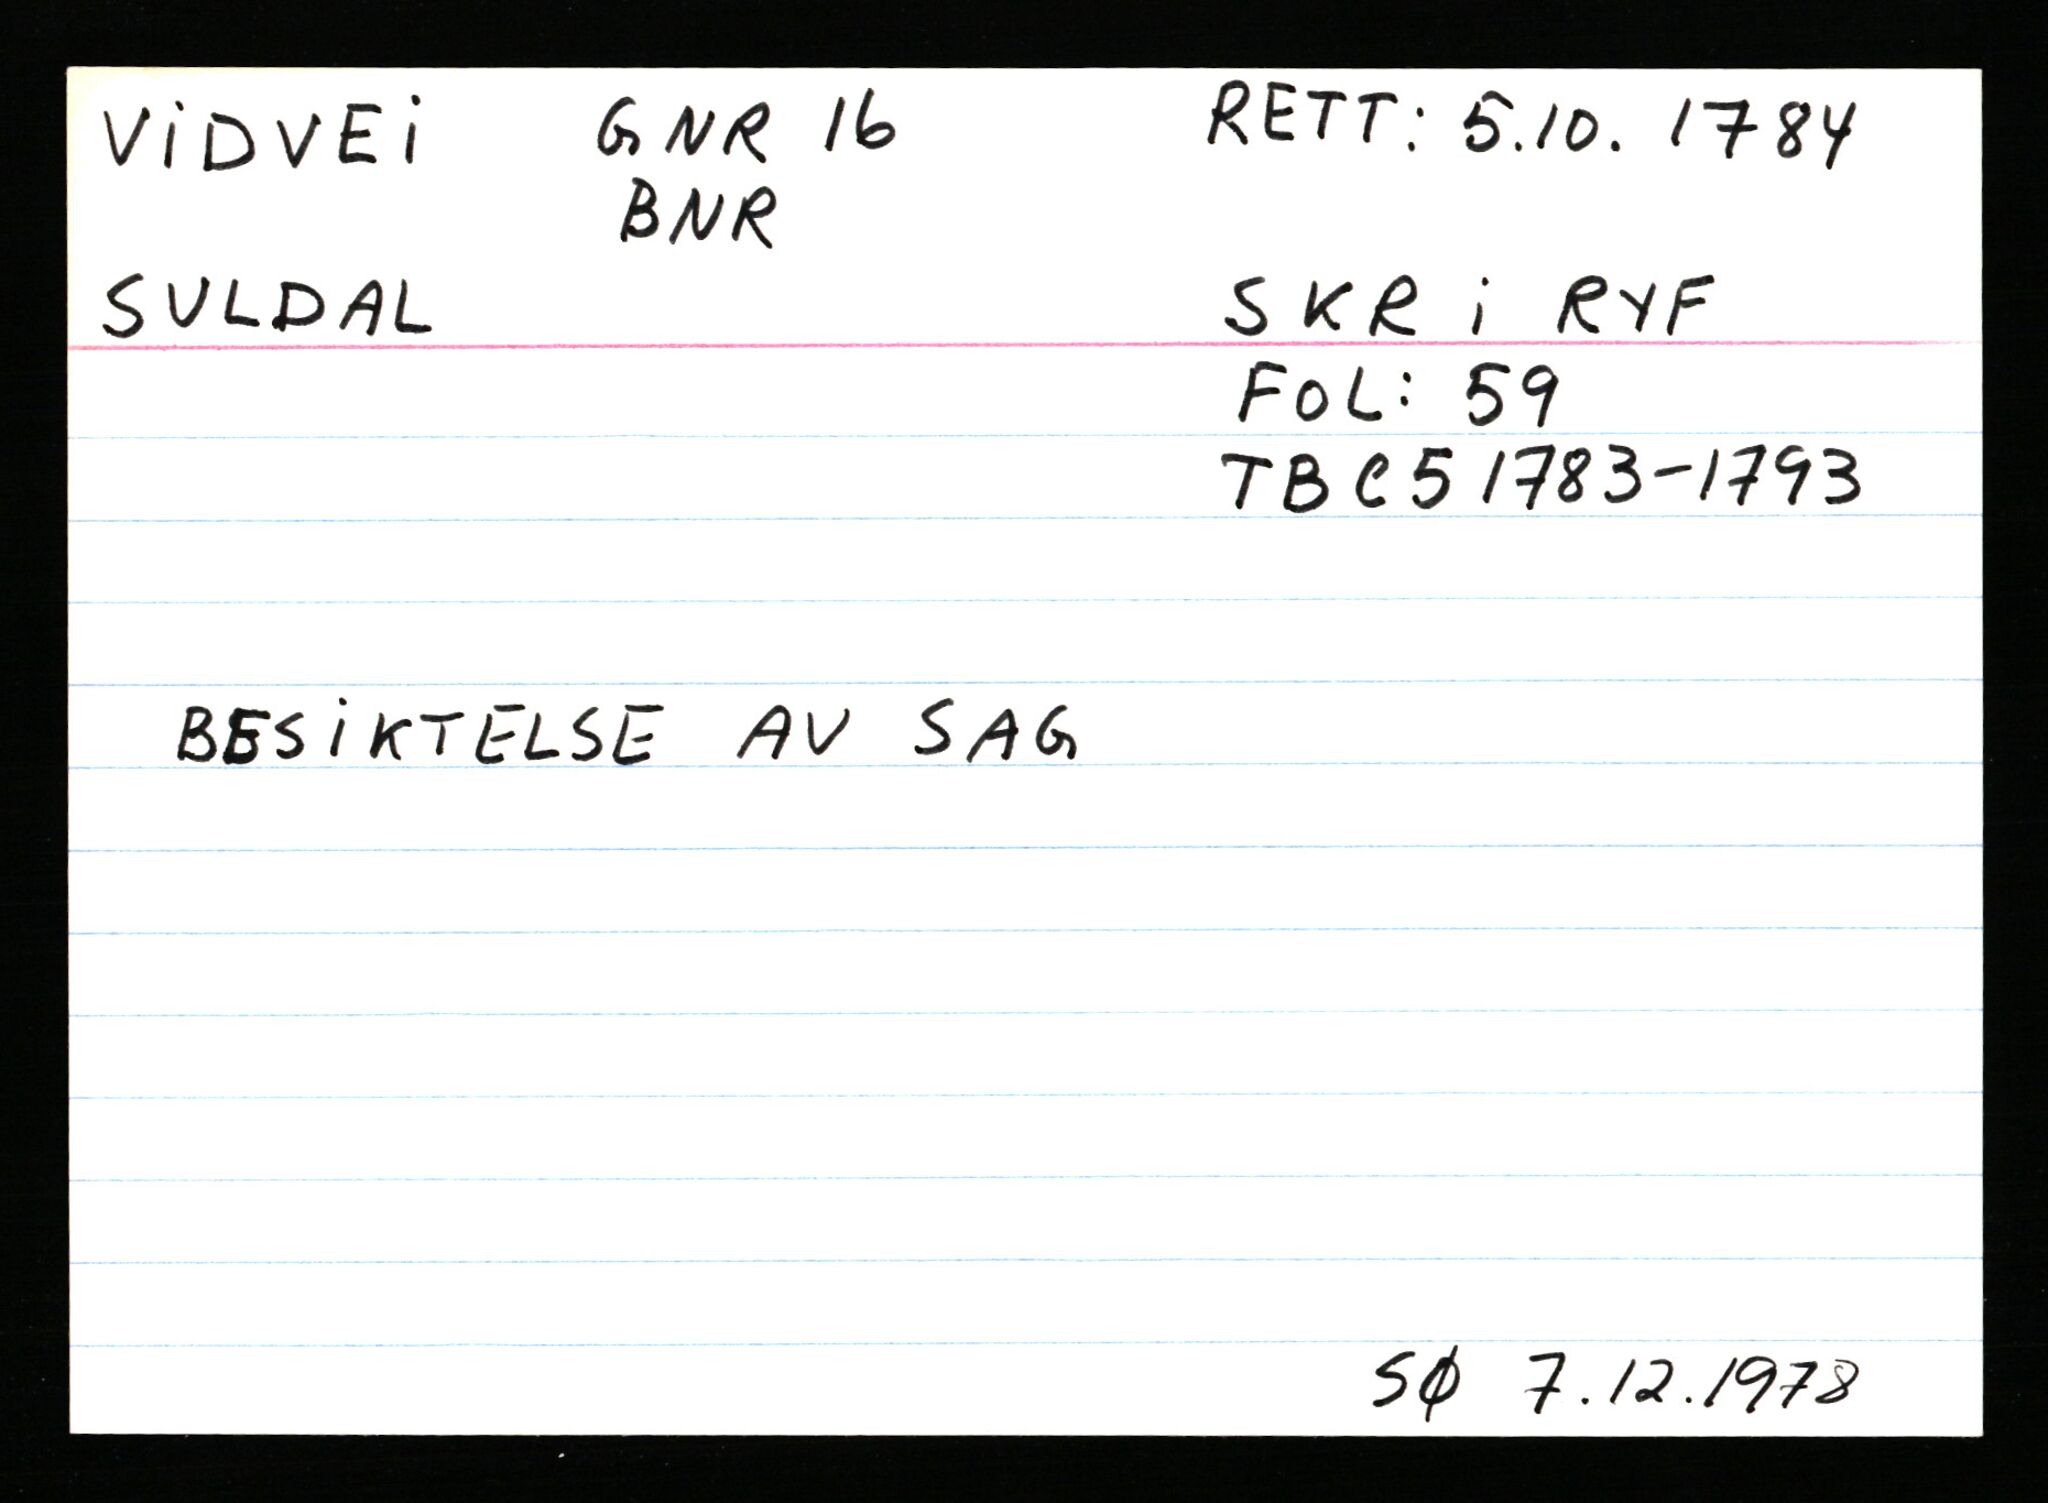 VIDVEI GNR 16 RETT: 5.10. 1784
BNR
SULDAL SKR i RYF
FOL: 59
TB C5 1783-1793
BESIKTELSE AV SAG
SØ 7.12.1978